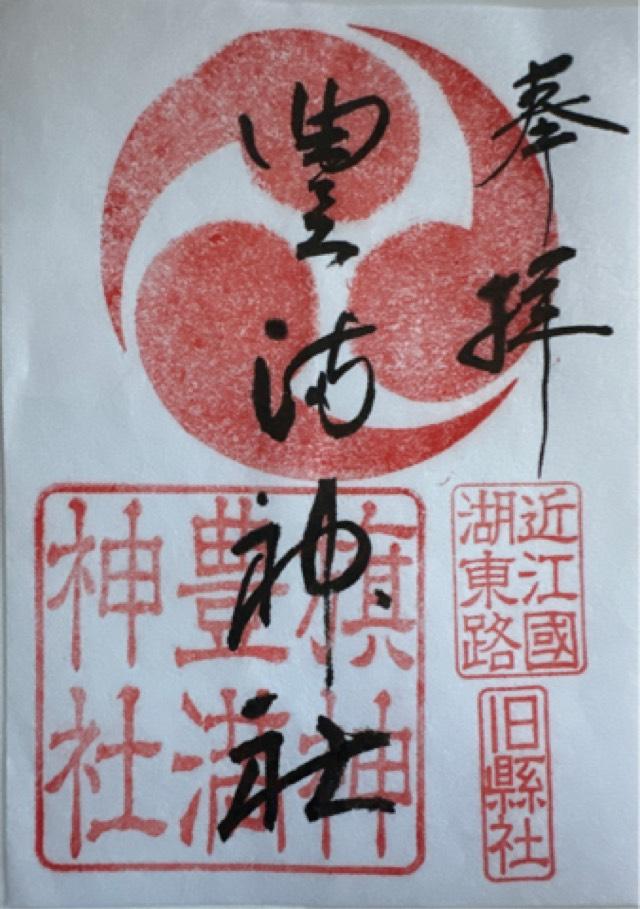 奉拝
豊満神社
旗神
豊満
神社
近江國
湖東路
旧縣社